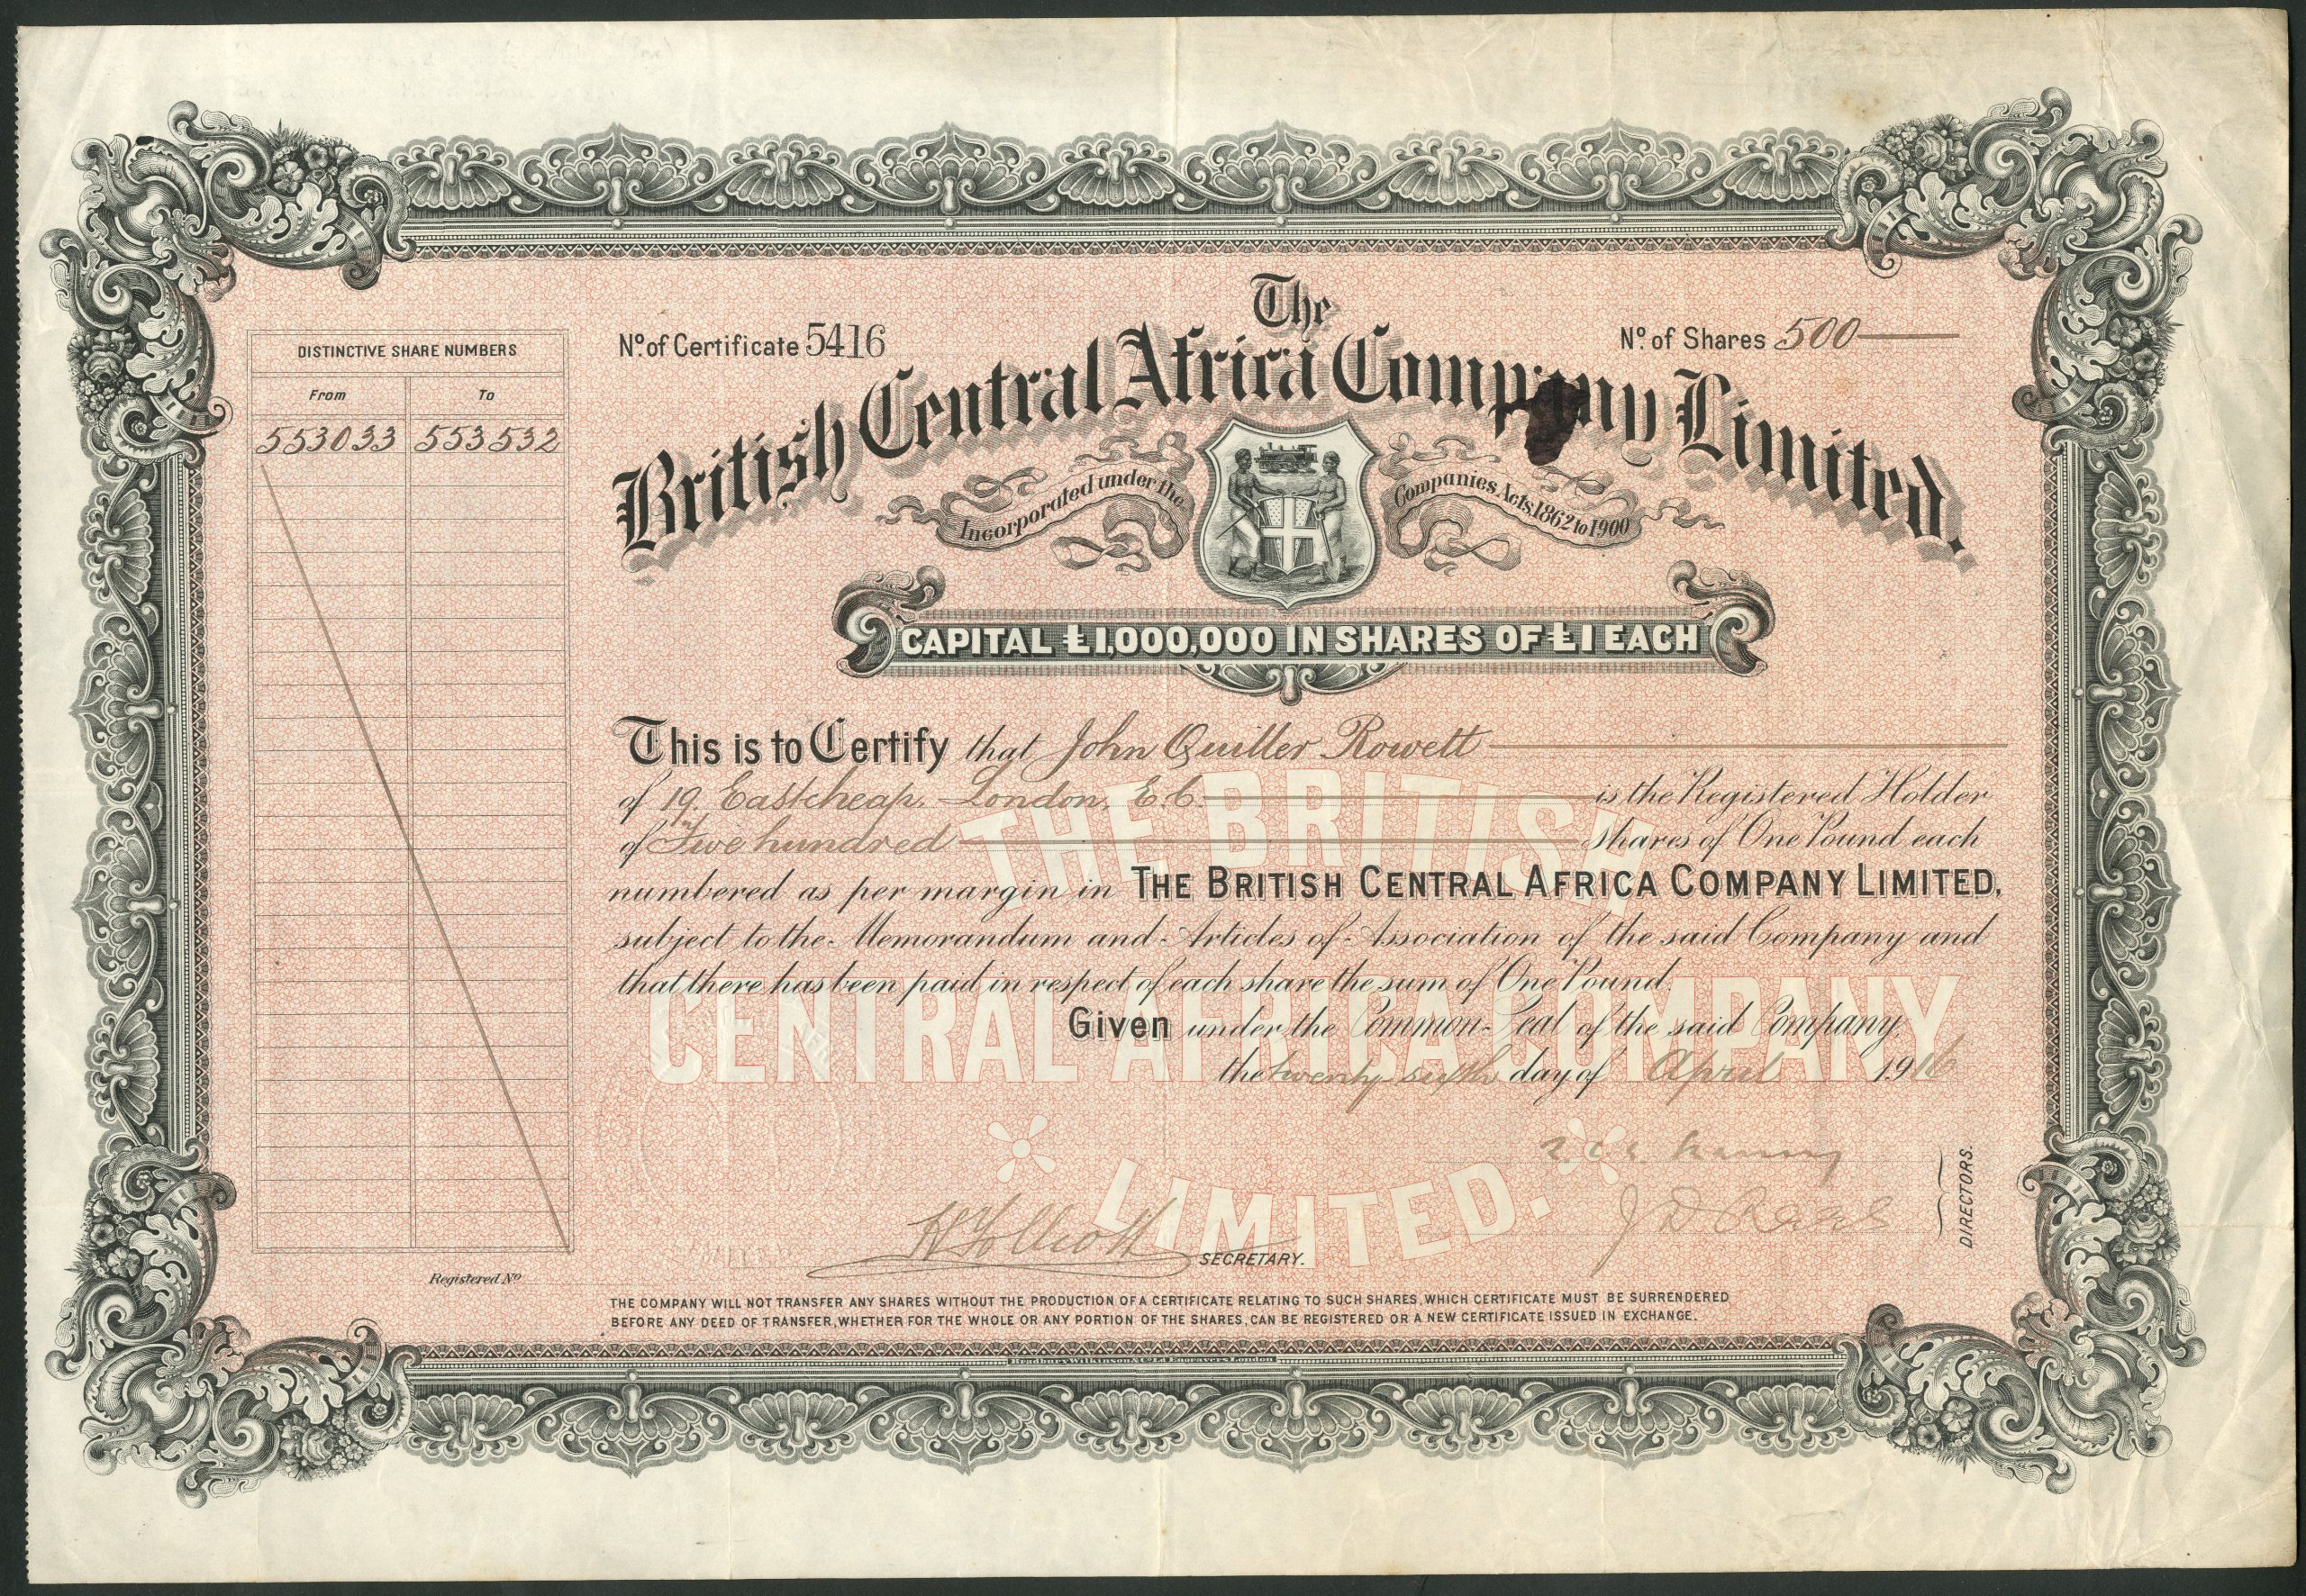 The
Nº of Certificate 5416
Nº of Shares 500
British Central Africa Company Limited.
Incorporated under the Companies Acts, 1862 to 1900
CAPITAL £1,000,000 IN SHARES OF £1 EACH
DISTINCTIVE SHARE NUMBERS
From To
553033 553532
This is to Certify that John Quiller Rowett
of 19, Eastcheap, London, E.C. is the Registered Holder
of Five hundred Shares of One Pound each
numbered as per margin in THE BRITISH CENTRAL AFRICA COMPANY LIMITED,
subject to the Memorandum and Articles of Association of the said Company and
that there has been paid in respect of each share the sum of One Pound.
Given under the Common Seal of the said Company,
the twenty sixth day of April 1916
THE BRITISH
CENTRAL AFRICA COMPANY
LIMITED.
DIRECTORS.
SECRETARY.
Registered Nº
THE COMPANY WILL NOT TRANSFER ANY SHARES WITHOUT THE PRODUCTION OF A CERTIFICATE RELATING TO SUCH SHARES, WHICH CERTIFICATE MUST BE SURRENDERED
BEFORE ANY DEED OF TRANSFER, WHETHER FOR THE WHOLE OR ANY PORTION OF THE SHARES, CAN BE REGISTERED OR A NEW CERTIFICATE ISSUED IN EXCHANGE.
Bradbury Wilkinson & Co Ld Engravers London